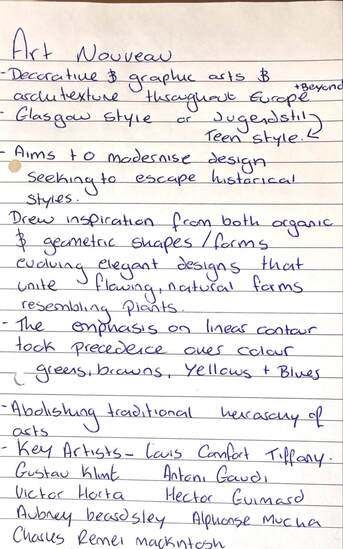 Art Nouveau
- Decorative & graphic arts &
architexture throughout Europe +Beyond
- Glasgow style or Jugendstil
Teen style.
- Aims to modernise design
seeking to escape historical
styles.
Drew inspiration from both organic
& geometric shapes/forms
evolving elegant designs that
unite flowing, natural forms
resembling plants.
- The emphasis on linear contour
took precedence over colour
greens, browns, yellows + Blues
- Abolishing traditional of
arts
- Key Artists - Louis Comfort Tiffany.
Gustav Klimt Antoni Gaudi
Victor Horta Hector Guimard
Aubrey beardsley Alphonse Mucha
Charles Remei mackintosh